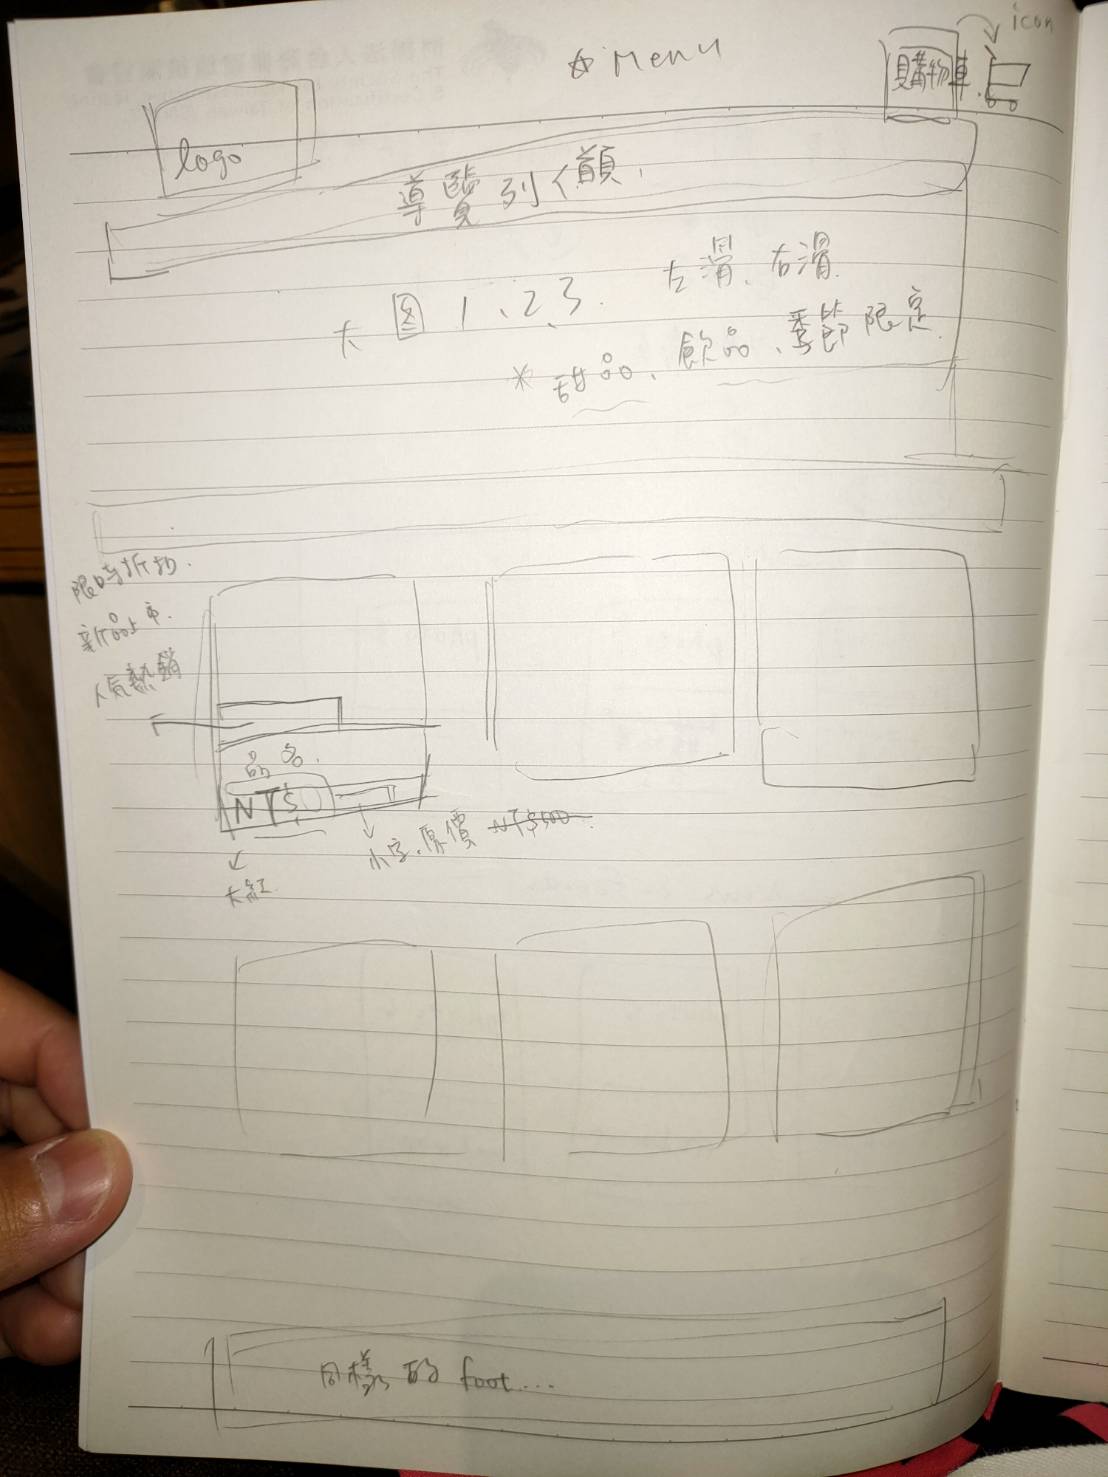 icon
☆ Menu
購物車
logo
導覽列
大圖 1、2、3. 左滑、右滑.
* 甜品、飲品、季節限定.
限時折扣.
新品上市.
人氣熱銷
品名.
NT$
小字.原價 NT$500
大紅
同樣的 foot...